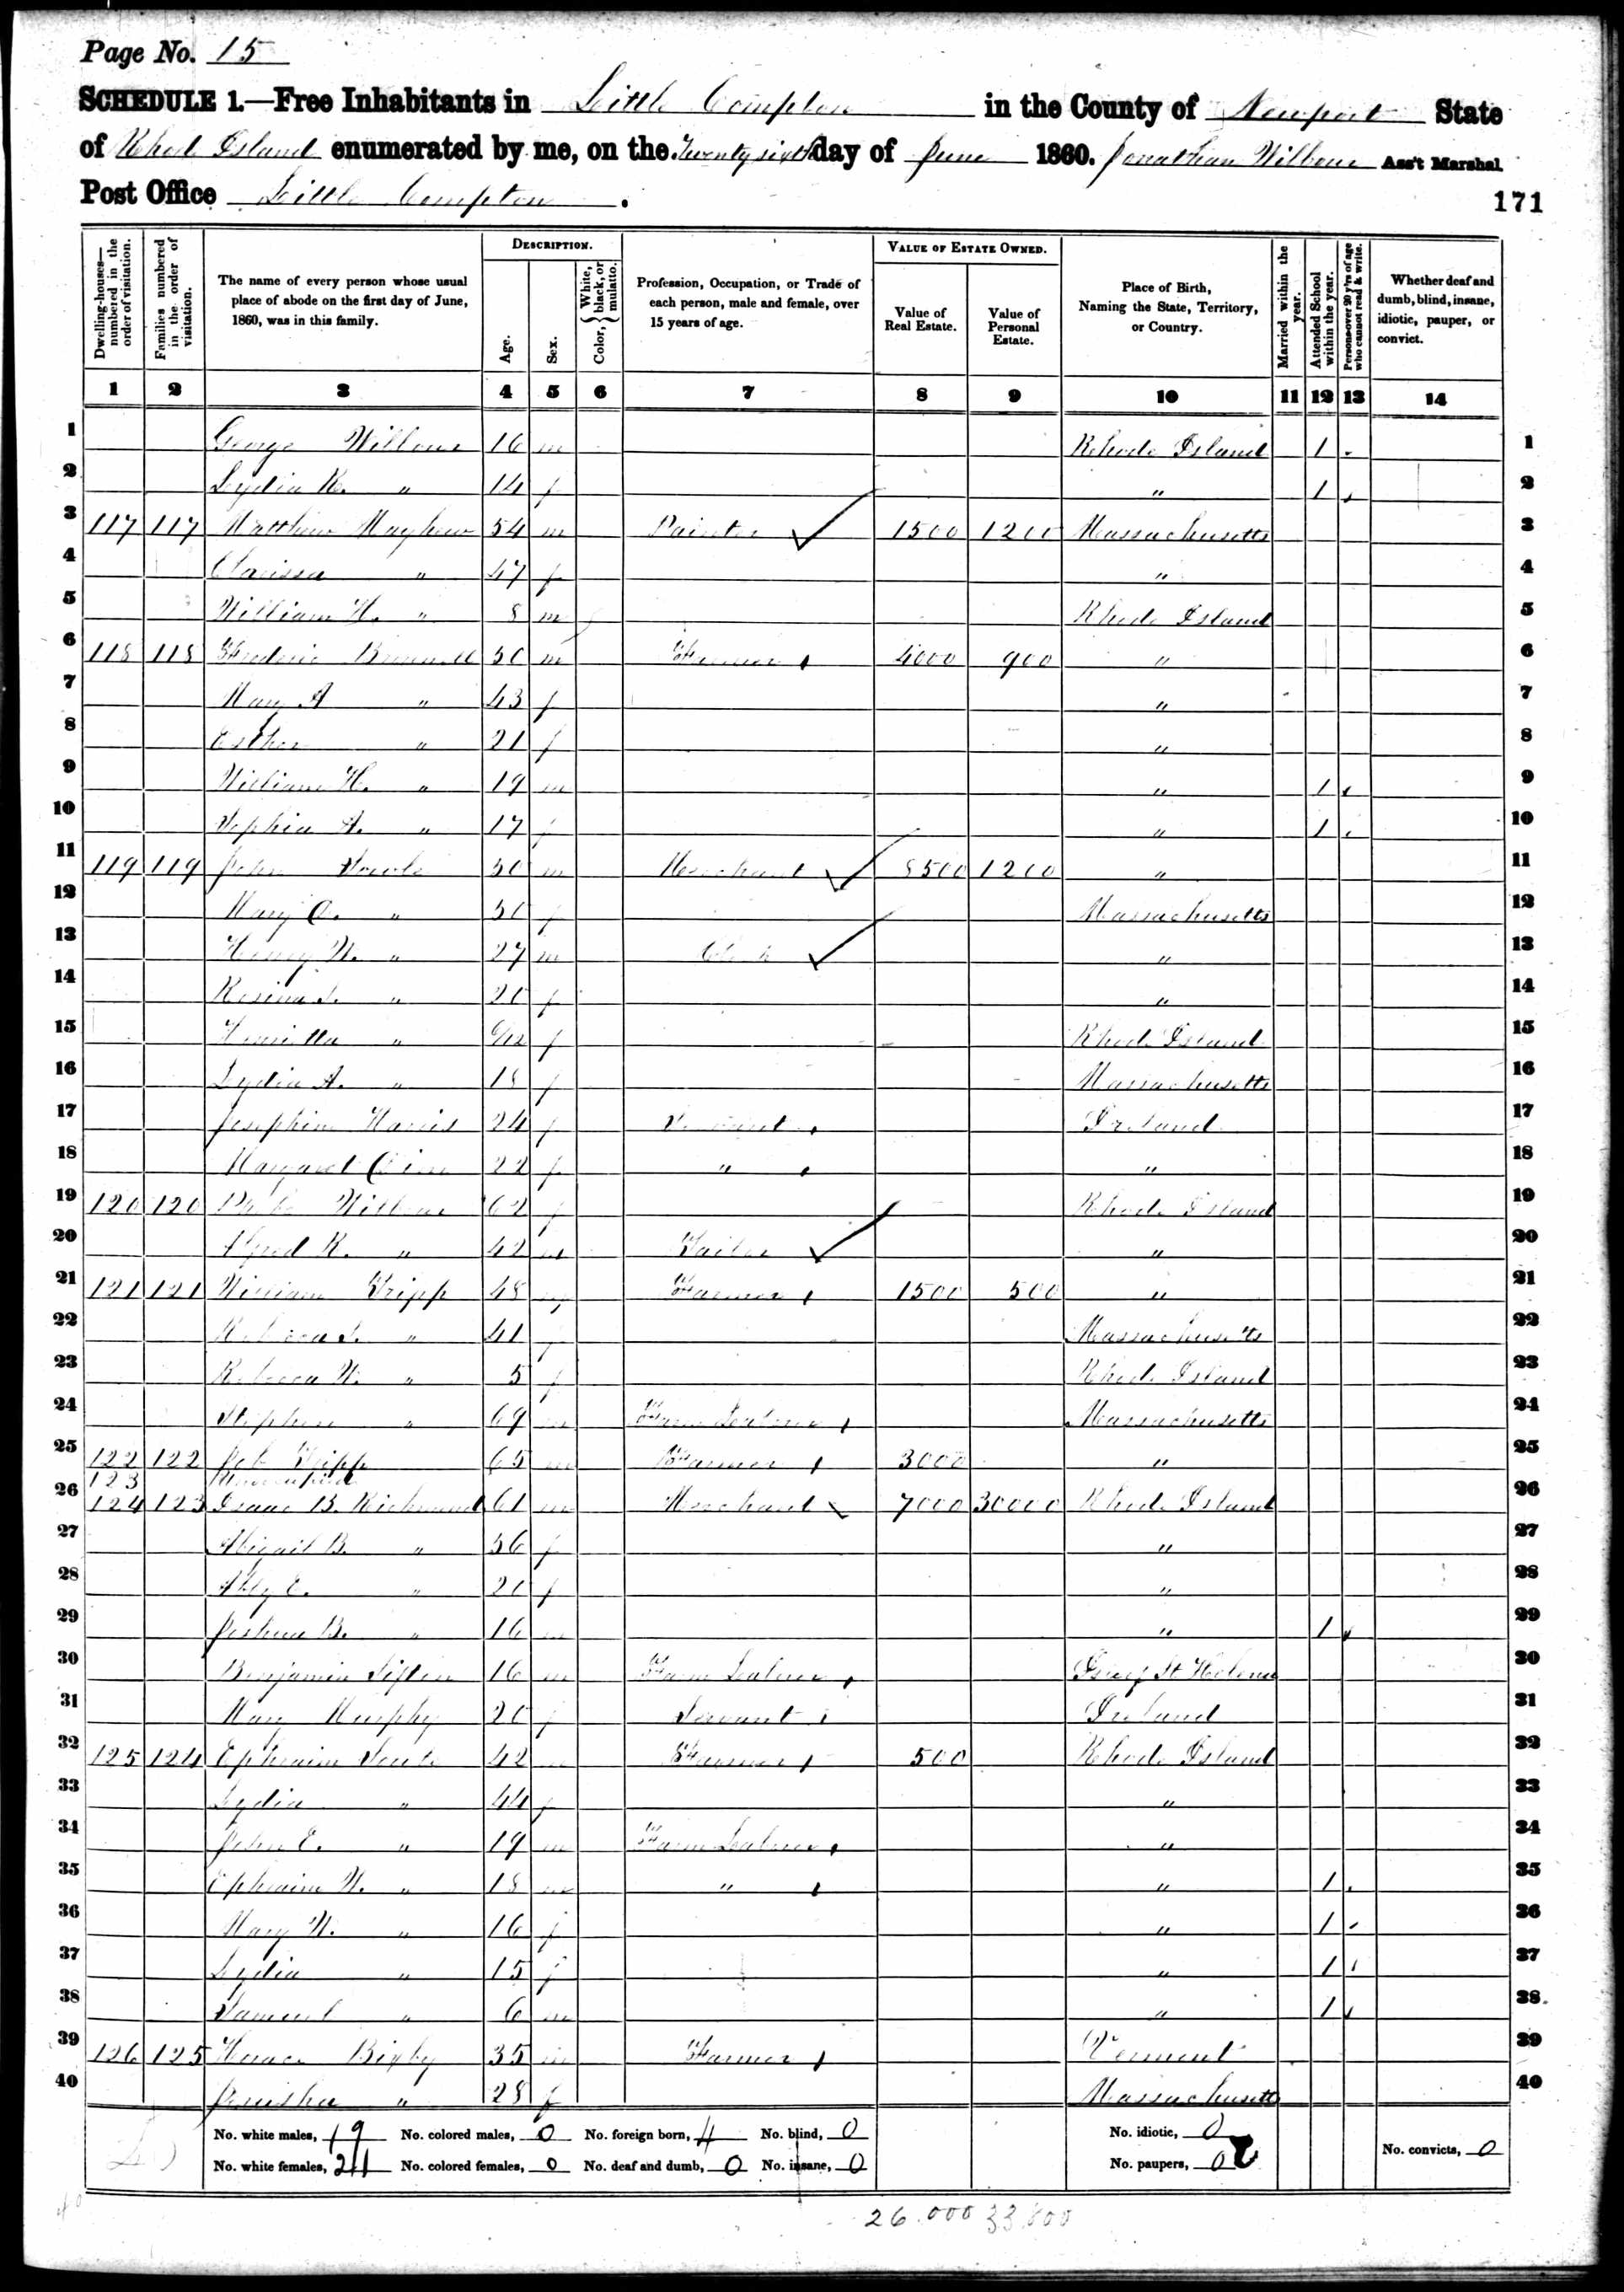 Page No. 15
SCHEDULE 1.—Free Inhabitants in Little Compton in the County of Newport State
of Rhode Island enumerated by me, on the Twenty sixth day of June 1860. Jonathan Wilbour Ass't Marshal
Post Office Little Compton . 171
Dwelling-houses—numbered in the order of visitation. Families numbered in the order of visitation. The name of every person whose usual place of abode on the first day of June, 1860, was in this family. DESCRIPTION. Age. Sex. Color, { White, black, or mulatto. Profession, Occupation, or Trade of each person, male and female, over 15 years of age. VALUE OF ESTATE OWNED. Value of Real Estate. Value of Personal Estate. Place of Birth, Naming the State, Territory, or Country. Married within the year. Attended School within the year. Persons over 20 y'rs of age who cannot read & write. Whether deaf and dumb, blind, insane, idiotic, pauper, or convict.
1 2 3 4 5 6 7 8 9 10 11 12 13 14
1 George Wilbour 16 m Rhode Island 1 1
2 Lydia R. " 14 f " 1 2
3 117 117 Matthew Mayhew 54 m Painter 1500 1200 Massachusetts 3
4 Clarissa " 47 f " 4
5 William H. " 8 m Rhode Island 5
6 118 118 Frederic Brownell 50 m Farmer 4000 900 " 6
7 Mary A " 43 f " 7
8 Esther " 21 f " 8
9 William H. " 19 m " 1 9
10 Sophia A. " 17 f " 1 10
11 119 119 John Sowle 50 m Merchant 8500 1200 " 11
12 Mary C. " 50 f Massachusetts 12
13 Henry W. " 27 m Clerk " 13
14 " 20 f " 14
15 Henrietta " 9/12 f Rhode Island 15
16 Lydia A. " 18 f Massachusetts 16
17 Josephine Harris 24 f Servant Ireland 17
18 Margaret 22 f " " 18
19 120 120 Phebe Wilbour 62 f Rhode Island 19
20 R. " 42 m Tailor " 20
21 121 121 William Tripp 48 m Farmer 1500 500 " 21
22 Rebecca S. " 41 f Massachusetts 22
23 Rebecca W. " 5 f Rhode Island 23
24 Stephen " 69 m Farm Laborer Massachusetts 24
25 122 122 Job Tripp 65 m Farmer 3000 " 25
123 Unoccupied
26 124 123 Isaac B. Richmond 61 m Merchant 7000 30000 Rhode Island 26
27 Abigail B. " 56 f " 27
28 Aby E. " 20 f " 28
29 Joshua B. " 16 m " 1 29
30 Benjamin 16 m Farm Laborer St Helena 30
31 Mary Murphy 20 f Servant Ireland 31
32 125 124 Ephraim Soule 42 m Farmer 500 Rhode Island 32
33 Lydia " 44 f " 33
34 John E. " 19 m Farm Laborer " 34
35 Ephraim W. " 18 m " " 1 35
36 Mary W. " 16 f " 1 36
37 Lydia " 15 f " 1 37
38 Samuel " 6 m " 1 38
39 126 125 Horace Bixby 35 m Farmer Vermont 39
40 Jerusha " 28 f Massachusetts 40
No. white males, 19 No. colored males, 0 No. foreign born, 4 No. blind, 0 No. idiotic, 0
No. white females, 21 No. colored females, 0 No. deaf and dumb, 0 No. insane, 0 No. paupers, 0 No. convicts, 0
26.000 33.800